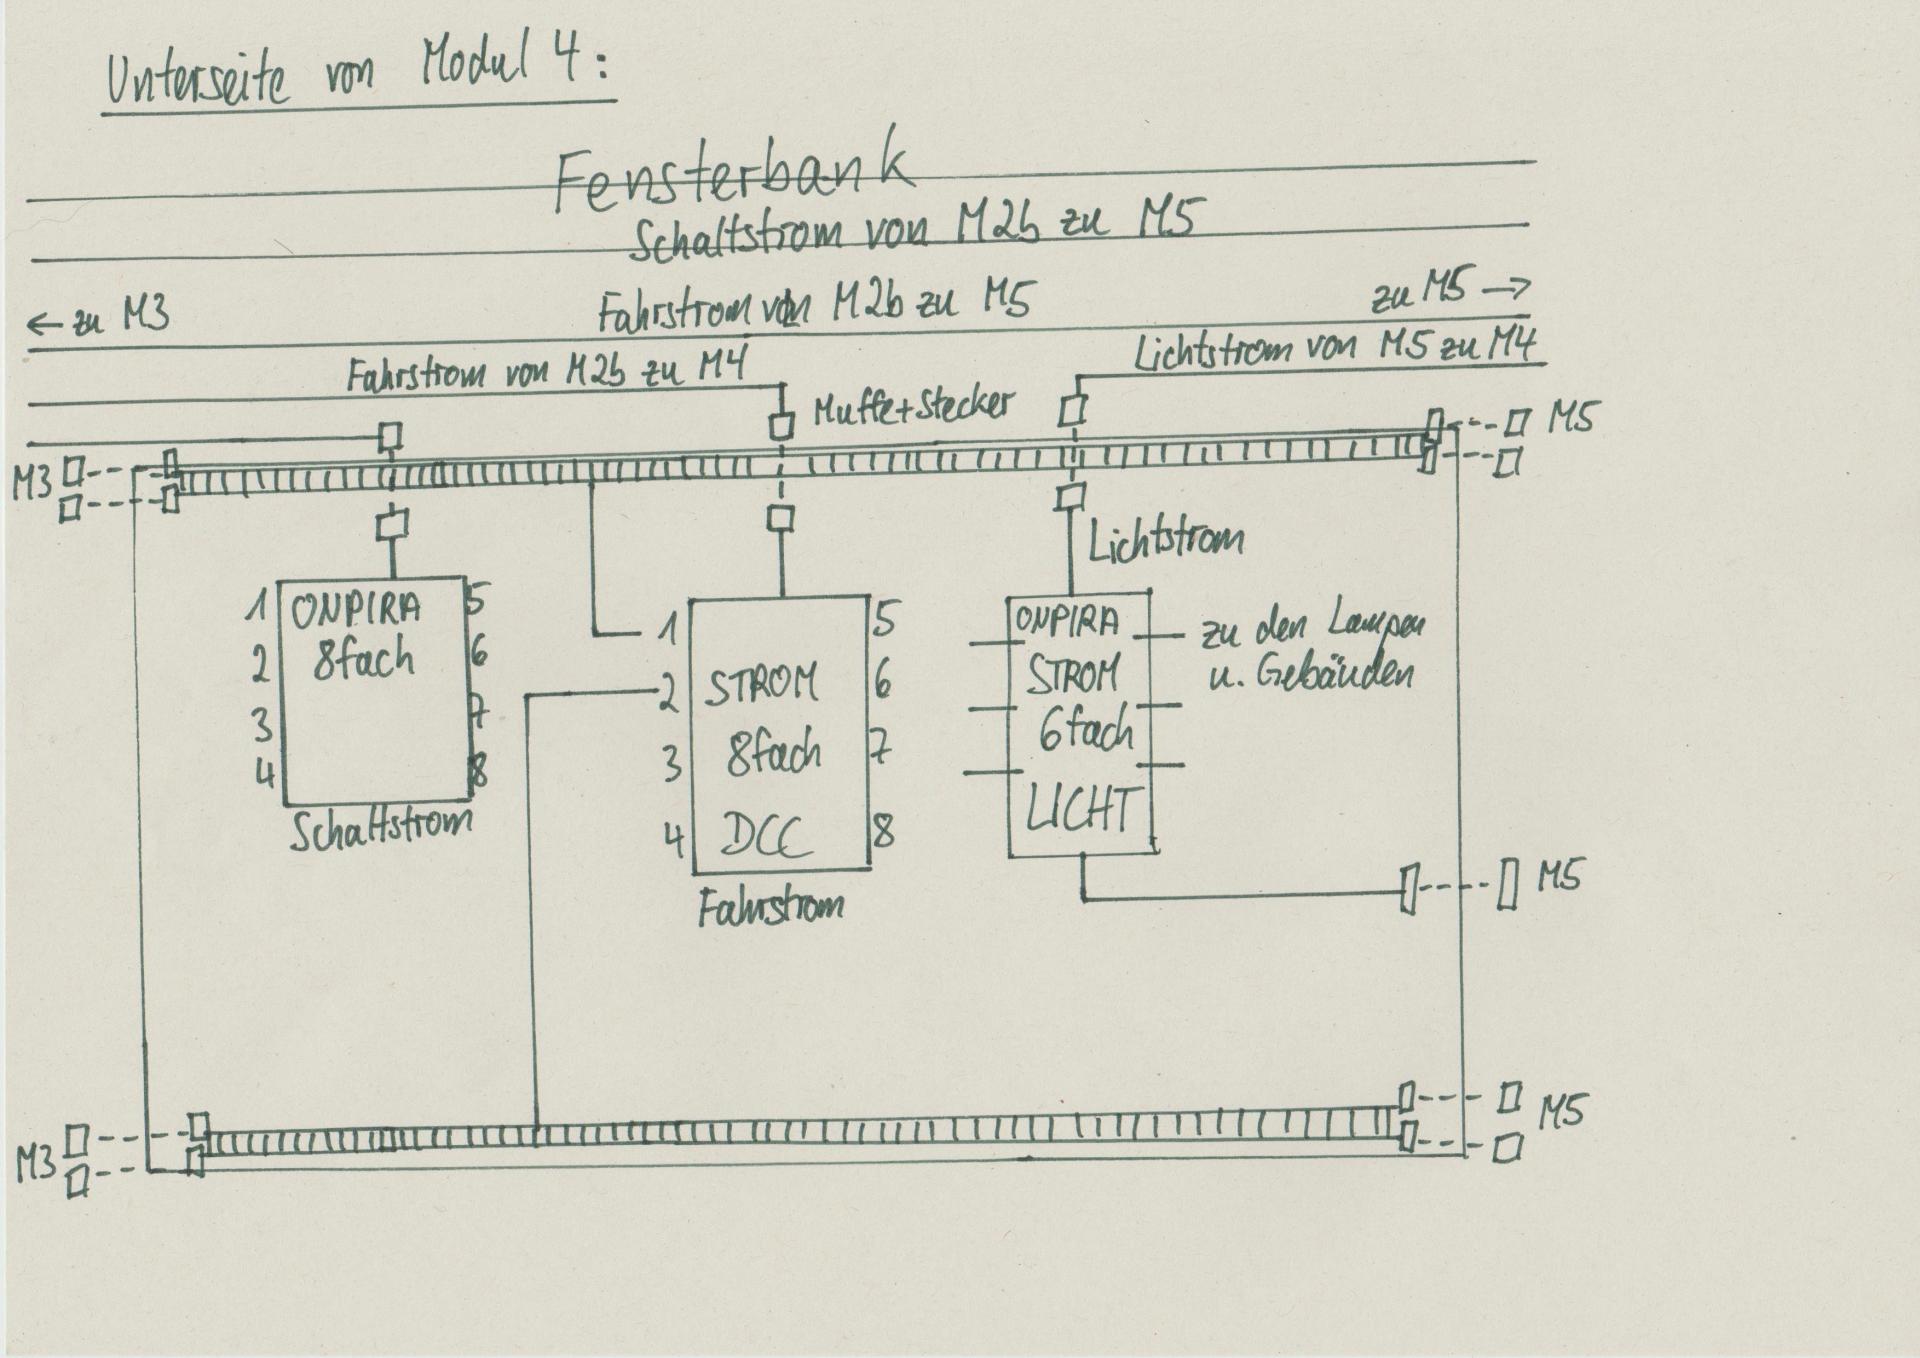 Unterseite von Modul 4:
Fensterbank
Schaltstrom von M2b zu M5
← zu M3
Fahrstrom von M2b zu M5
zu M5 →
Fahrstrom von M2b zu M4
Lichtstrom von M5 zu M4
Muffe+Stecker
M5
M3
Lichtstrom
1 ONPIRA 5
2 8fach 6
3 7
4 8
Schaltstrom
1 5
2 STROM 6
3 8fach 7
4 DCC 8
Fahrstrom
ONPIRA
STROM
6fach
LICHT
zu den Lampen
u. Gebäuden
M5
M3
M5